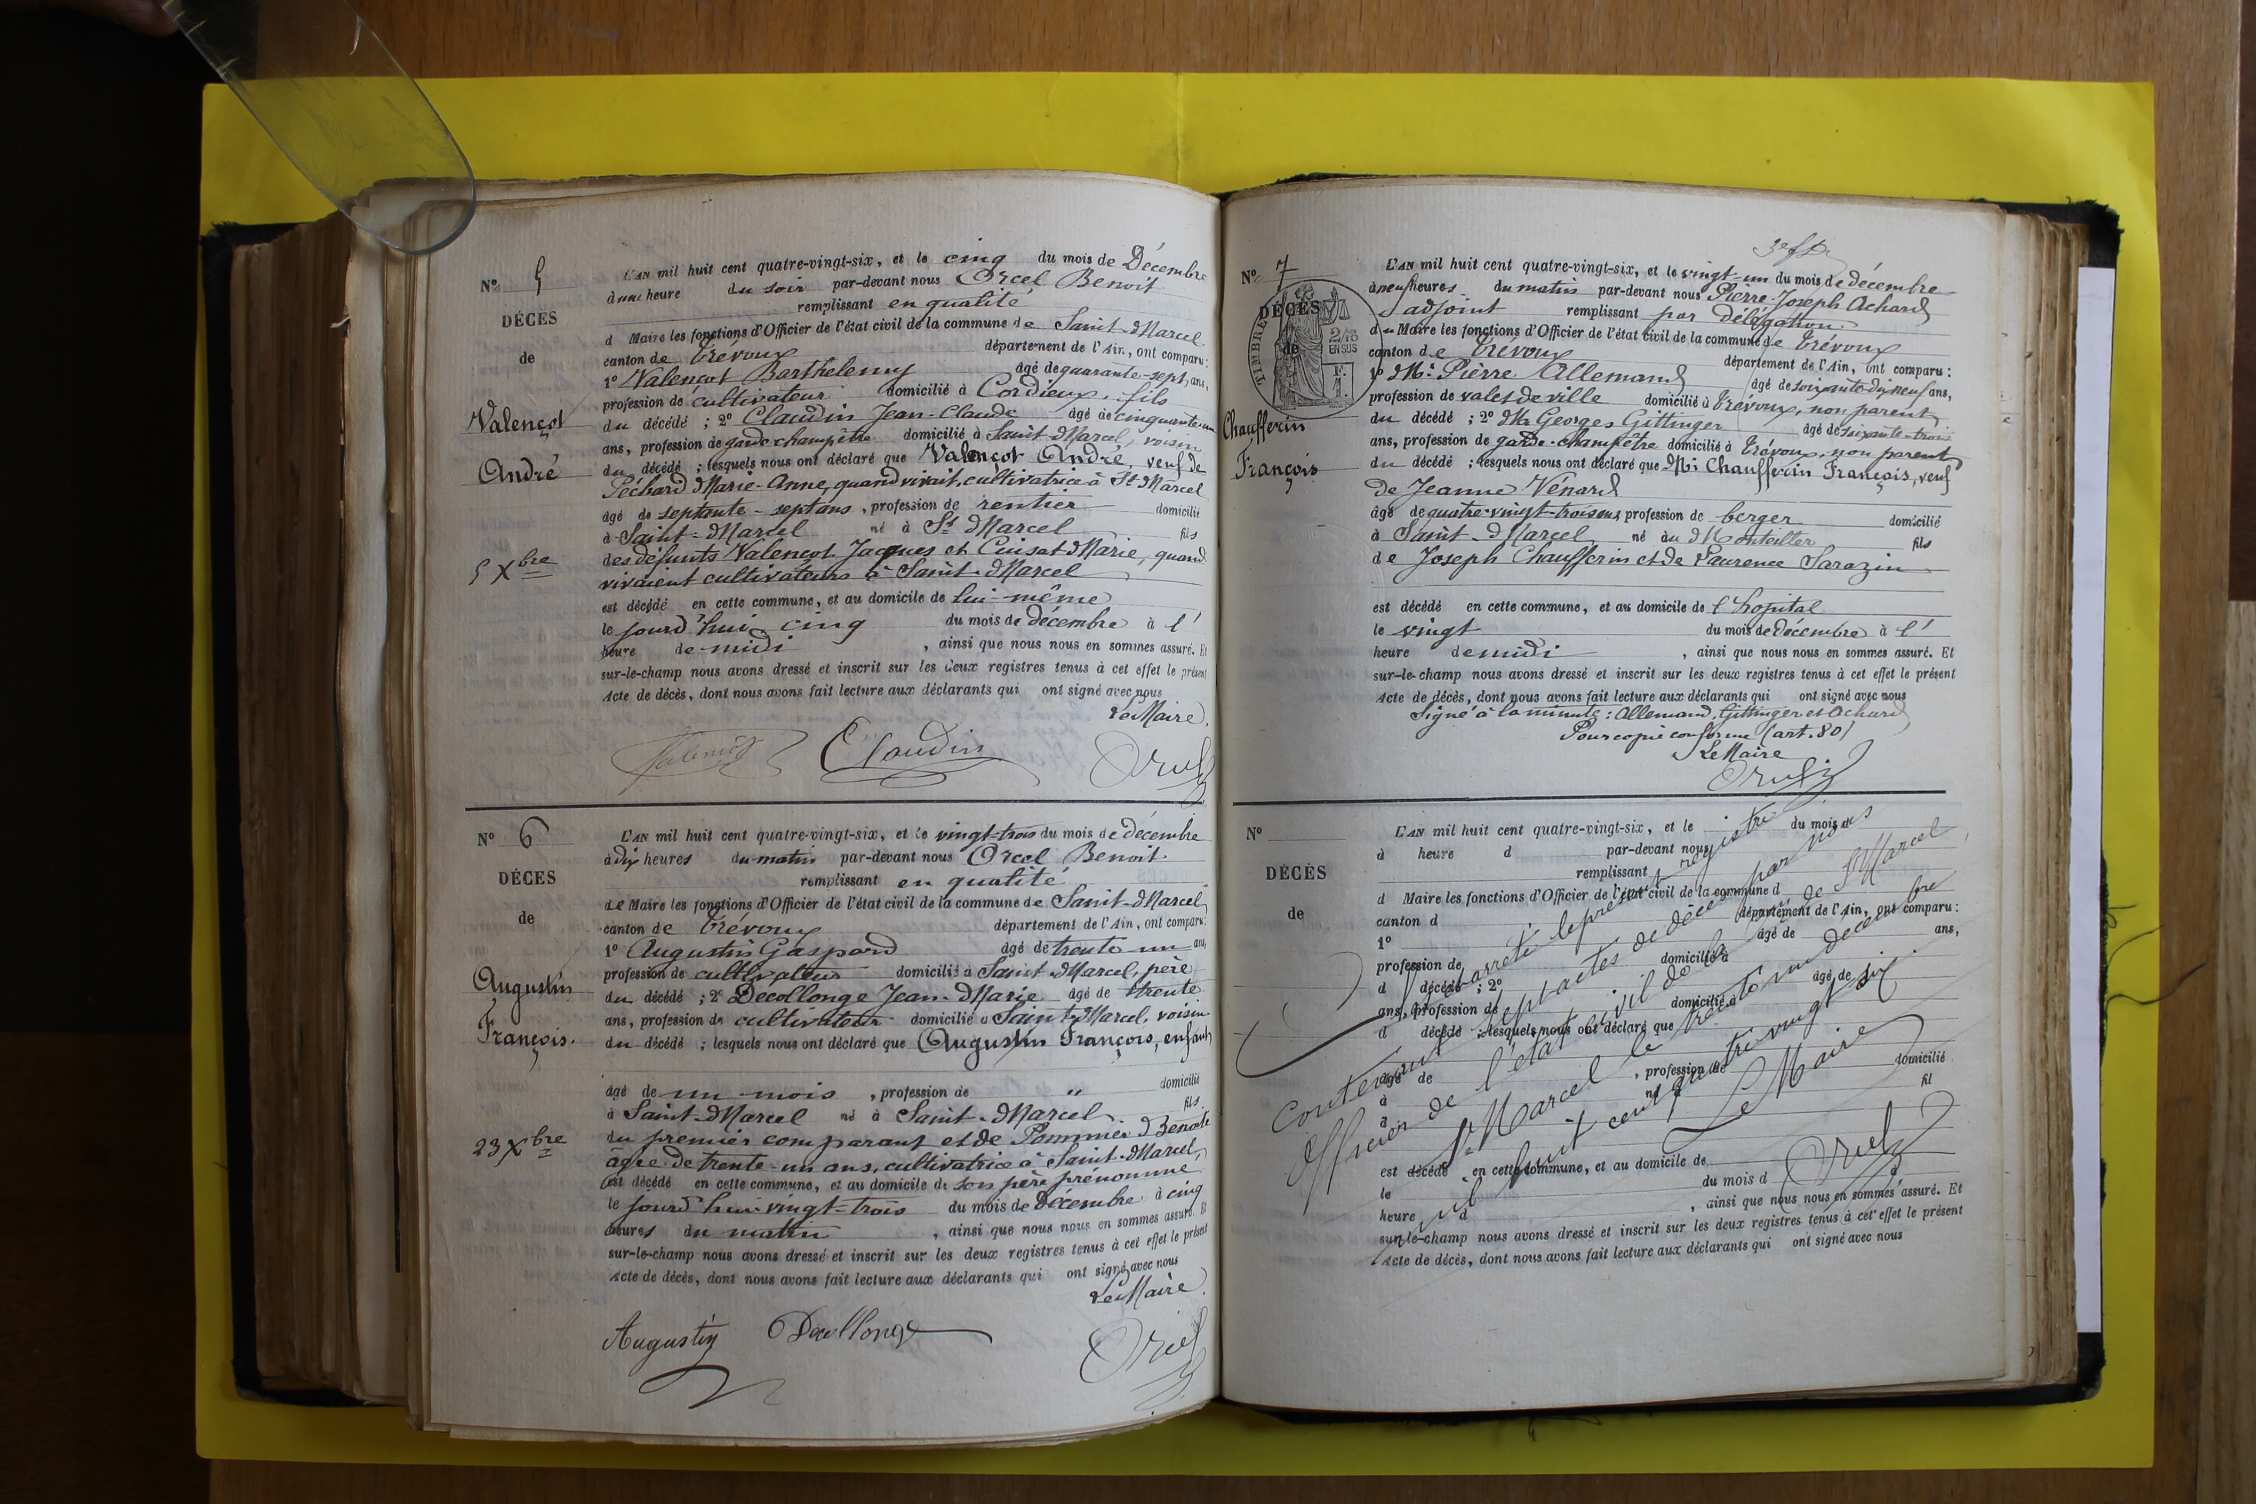 N° 5
DÉCÈS
de
Valençot
André
5 Xbre
L'AN mil huit cent quatre-vingt-six, et le cinq du mois de Décembre
à une heure du soir par-devant nous Orcel Benoit
remplissant en qualité
d Maire les fonctions d'Officier de l'état civil de la commune de Saint-Marcel
canton de Trévoux département de l'Ain, ont comparu:
1° Valençot Barthelemy âgé de quarante-sept ans,
profession de cultivateur domicilié à Cordieux, fils
du décédé ; 2° Claudin Jean-Claude âgé de cinquante-un
ans, profession de garde champêtre domicilié à Saint-Marcel, voisin
du décédé ; lesquels nous ont déclaré que Valençot André, veuf de
Péchard Marie-Anne, quand vivait, cultivatrice à St Marcel
âgé de septante-sept ans, profession de rentier domicilié
à Saint-Marcel né à St Marcel fils
des défunts Valençot Jacques et Cuisat Marie, quand
vivaient cultivateurs à Saint-Marcel
est décédé en cette commune, et au domicile de lui-même
le jourd'hui cinq du mois de décembre à l'
heure de midi, ainsi que nous nous en sommes assuré. Et
sur-le-champ nous avons dressé et inscrit sur les deux registres tenus à cet effet le présent
Acte de décès, dont nous avons fait lecture aux déclarants qui ont signé avec nous
Le Maire
Valençot Claudin Orcel
N° 6
DÉCÈS
de
Augustin
François.
23 Xbre
L'AN mil huit cent quatre-vingt-six, et le vingt-trois du mois de décembre
à dix heures du matin par-devant nous Orcel Benoit
remplissant en qualité
de Maire les fonctions d'Officier de l'état civil de la commune de Saint-Marcel
canton de Trévoux département de l'Ain, ont comparu:
1° Augustin Gaspard âgé de trente un ans,
profession de cultivateur domicilié à Saint-Marcel, père
du décédé ; 2° Decollonge Jean-Marie âgé de trente
ans, profession de cultivateur domicilié à Saint-Marcel, voisin
du décédé ; lesquels nous ont déclaré que Augustin François, enfant
âgé de un mois, profession de " domicilié
à Saint-Marcel né à Saint-Marcel fils
du premier comparant et de Pommier Benoite
âgée de trente-un ans, cultivatrice à Saint-Marcel,
est décédé en cette commune, et au domicile de son père prénommé
le jourd'hui vingt-trois du mois de décembre à cinq
heures du matin, ainsi que nous nous en sommes assuré. Et
sur-le-champ nous avons dressé et inscrit sur les deux registres tenus à cet effet le présent
Acte de décès, dont nous avons fait lecture aux déclarants qui ont signé avec nous
Le Maire
Augustin Decollonge Orcel
N° 7
DÉCÈS
de
TIMBRE
2/10 EN SUS
Chaufferin
François
L'AN mil huit cent quatre-vingt-six, et le vingt-un du mois de décembre
à neuf heures du matin par-devant nous Pierre-Joseph Achard
adjoint remplissant par délégation
d Maire les fonctions d'Officier de l'état civil de la commune de Trévoux
canton de Trévoux département de l'Ain, ont comparu:
1° Mr Pierre Allemand âgé de soixante-dix-neuf ans,
profession de valet de ville domicilié à Trévoux, non parent
du décédé ; 2° Mr Georges Gittinger âgé de soixante-trois
ans, profession de garde-champêtre domicilié à Trévoux, non parent
du décédé ; lesquels nous ont déclaré que Mr Chaufferin François, veuf
de Jeanne Vénard
âgé de quatre-vingt-trois ans, profession de berger domicilié
à Saint-Marcel né au Montellier fils
de Joseph Chaufferin et de Laurence Sarazin
est décédé en cette commune, et au domicile de l'hopital
le vingt du mois de décembre à l'
heure de midi, ainsi que nous nous en sommes assuré. Et
sur-le-champ nous avons dressé et inscrit sur les deux registres tenus à cet effet le présent
Acte de décès, dont nous avons fait lecture aux déclarants qui ont signé avec nous
Signé à la minute : Allemand, Gittinger et Achard
Pour copie conforme (art. 80)
Le Maire
Orcel
N°
DÉCÈS
de
L'AN mil huit cent quatre-vingt-six, et le du mois d
à heure d par-devant nous
remplissant
d Maire les fonctions d'Officier de l'état civil de la commune d
canton d département de l'Ain, ont comparu:
1° âgé de ans,
profession de domicilié à
d décédé ; 2° âgé de
ans, profession de domicilié à
d décédé ; lesquels nous ont déclaré que
âgé de, profession de domicilié
à né à fil
d
est décédé en cette commune, et au domicile de
le du mois d à
heure d, ainsi que nous nous en sommes assuré. Et
sur-le-champ nous avons dressé et inscrit sur les deux registres tenus à cet effet le présent
Acte de décès, dont nous avons fait lecture aux déclarants qui ont signé avec nous
arrêté le présent registre
contenant sept actes de décès par nous
Officier de l'état civil de la de St Marcel
St Marcel le trente un décembre
mil huit cent quatre vingt six
Le Maire
Orcel